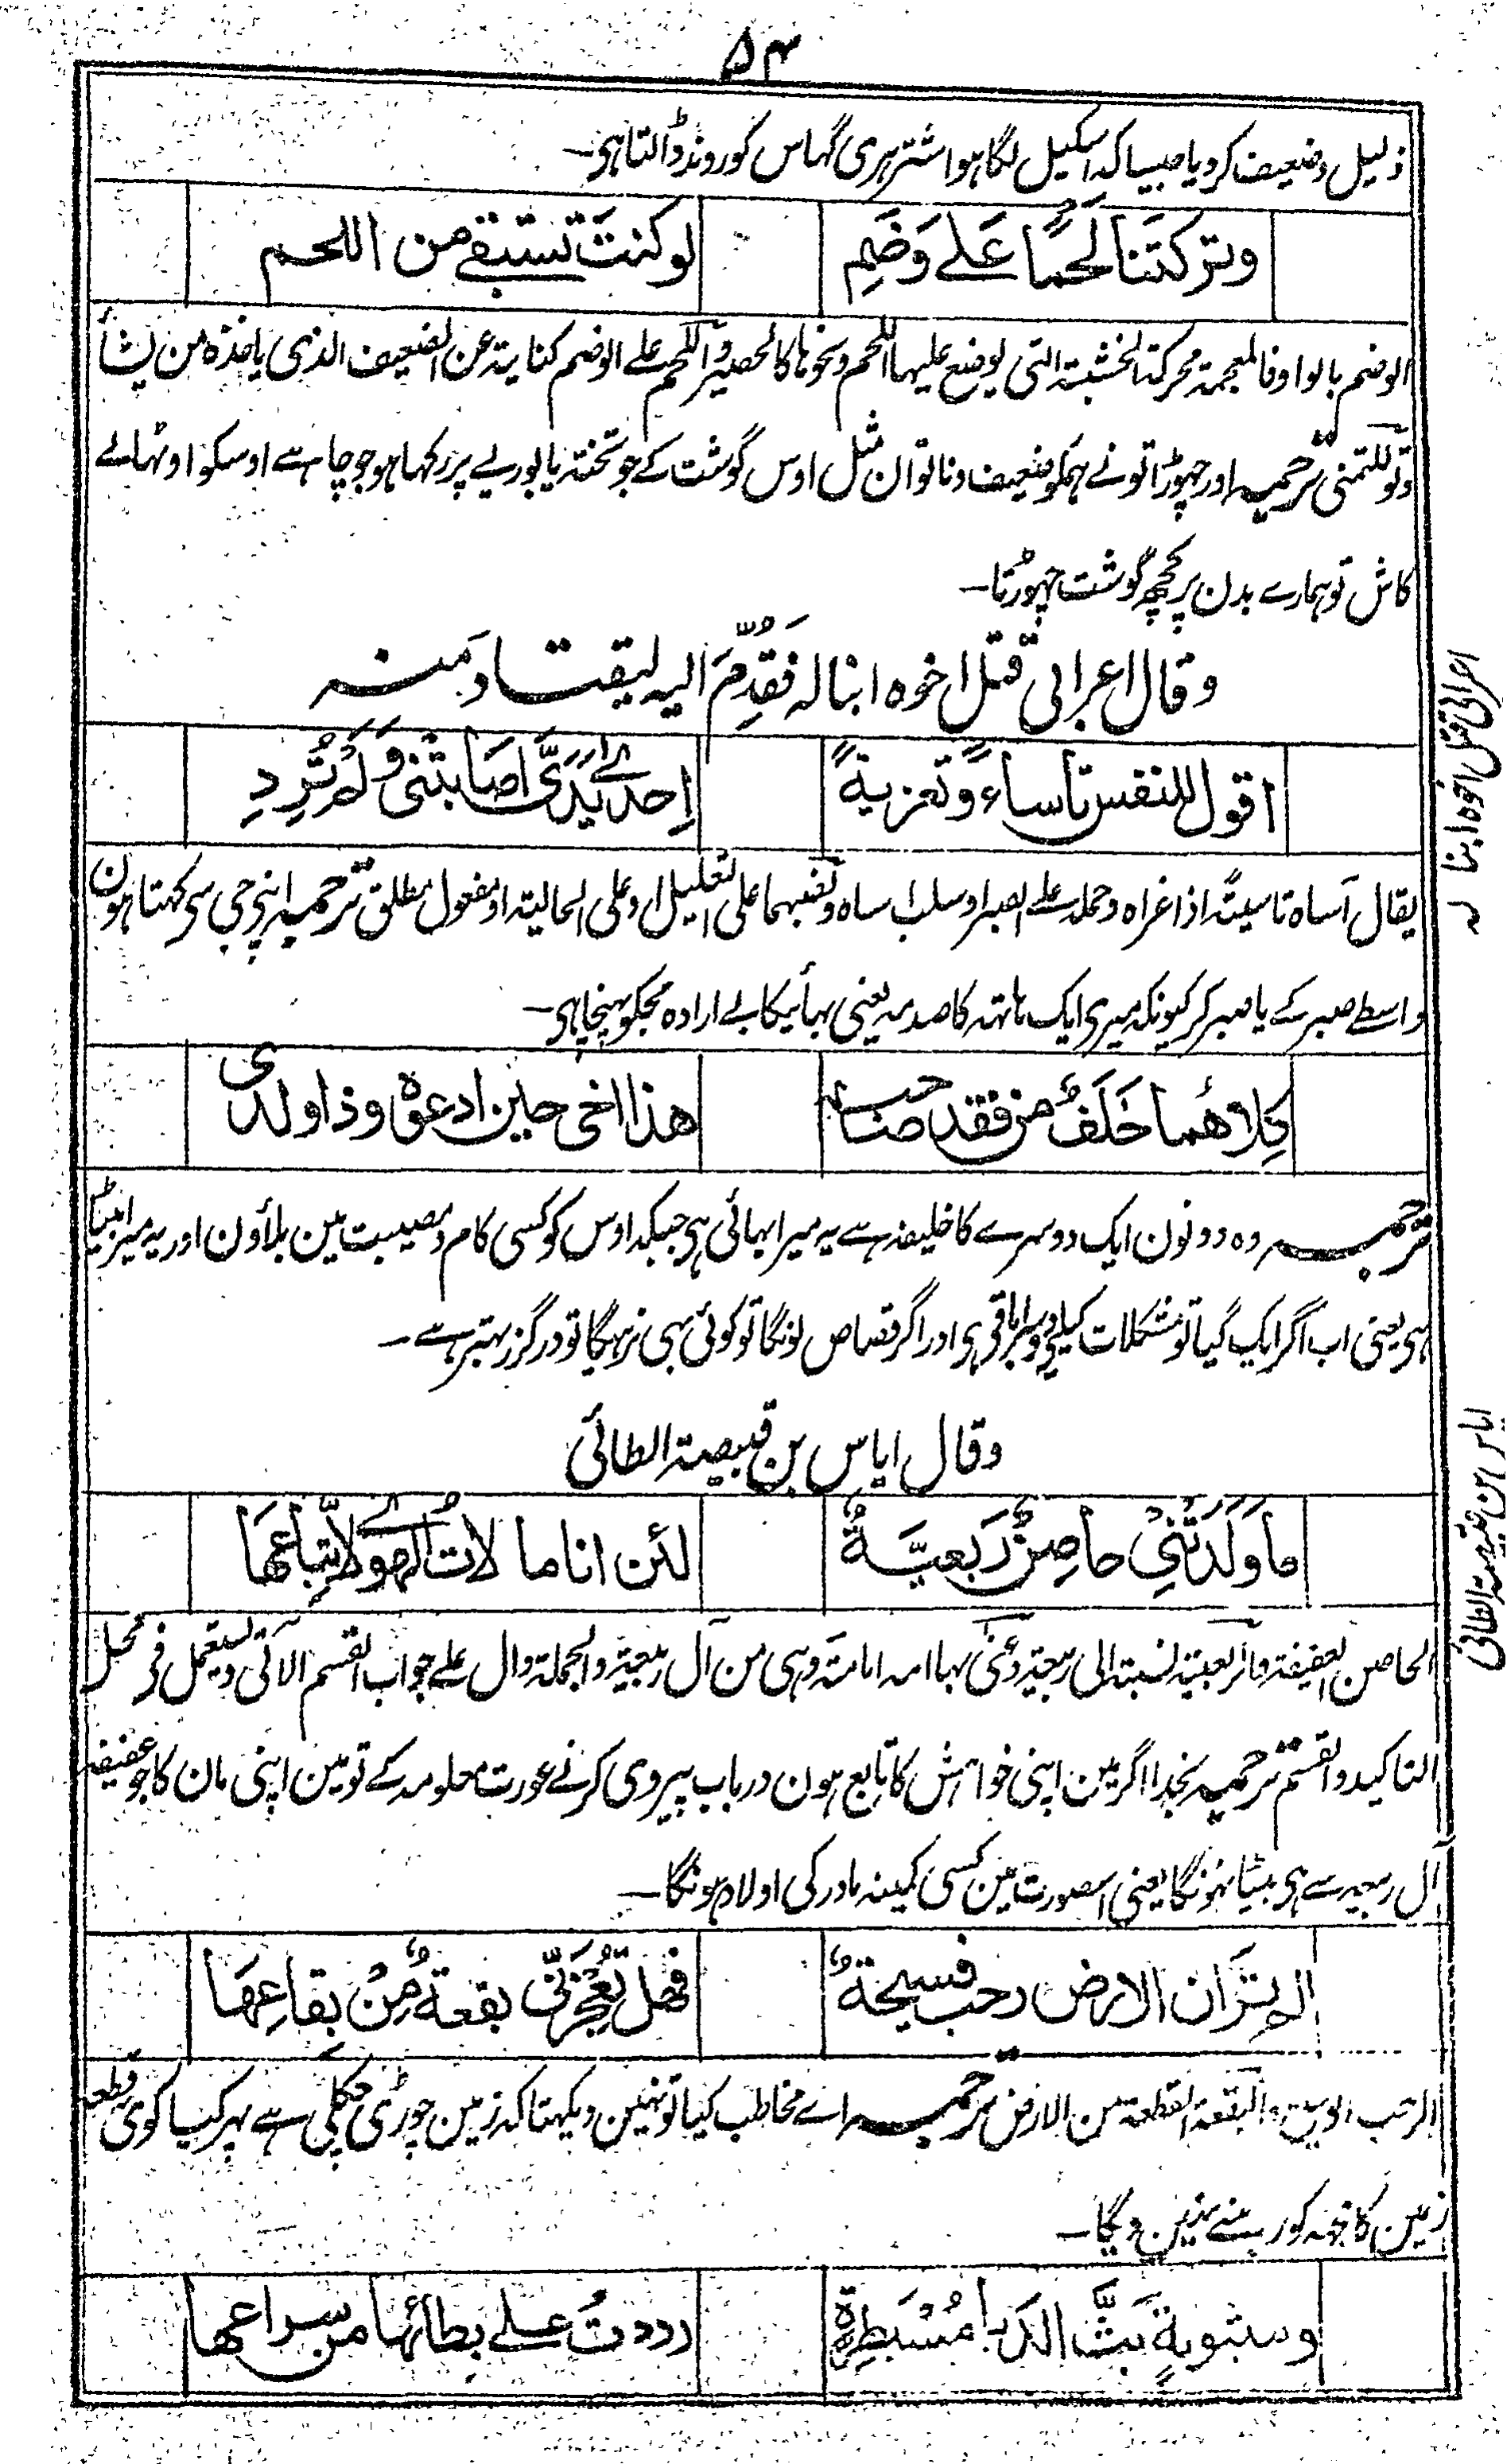 ۵۴
ذلیل و ضعیف کر دیا جیسا کہ اسکیل لگا ہوا شتر ہری گہاس کو روند ڈالتا ہی۔
وتركتنا لَحْمًا عَلے وَضَمِ لو كنتَ تستبقے من اللحم
الوضم بالواو فالمعجمة محركة الخشبة التی یوضع علیہا اللحم ونحوہا کالحصیر واللحم علے الوضم کنایة عن الضعیف الذی یاخذہ من یشأ
ولو للتمنی ترجمہ اور چہوڑا تو نے ہمکو ضعیف و ناتوان مثل اوس گوشت کے جو تختہ یا بوریے پر رکہا ہو جو چاہے اوسکو اوٹہالے
کاش تو ہمارے بدن پر کچہہ گوشت چہوڑتا۔
وقال اعرابی قتل اخوه ابنا له فَقُدِّمَ اليه ليقتاد منه
اقول للنفس تأساءً وتعزيةً اِحدٰے يَدَيَّ اصَابتنی وَلَم تُرِدِ
یقال آساہ تاسیتہ اذا عزاہ وحملہ علے الصبر او سلب اساہ ونصبہما علی التعلیل او علی الحالیتہ او مفعول مطلق ترجمہ اپنے جی سی کہتا ہون
واسطے صبر کے یا صبر کر کیونکہ میری ایک ہاتہہ کا صدمہ یعنی بہائیکا بے ارادہ مجکو پہنچا ہی۔
كِلاهُما خَلَفٌ من فقد صاحبه هذا اخی حين ادعوه وذا ولدی
ترجمہ وہ دونون ایک دوسرے کا خلیفہ ہے یہ میرا بہائی ہی جبکہ اوس کو کسی کام و مصیبت مین بلاؤن اور یہ میرا بیٹا
ہی یعنی اب اگر ایک گیا تو مشکلات کیلیے دوسرا باقی ہی اور اگر قصاص لونگا تو کوئی بہی نرہیگا تو درگزر بہتر ہے۔
وقال ایاس بن قبیصة الطائی
ما وَلَدَتْنِی حاصِنٌ رَبعيَّةٌ لئن انا مالات الهوٰے لاتّباعهَا
الحاصن العفیفة والربعیة نسبة الی ربیعة وعنی بہا امہ امامة وہی من آل ربیعة والجملة دال علے جواب القسم الآتی ویستعمل فی محل
التاکید والقسم ترجمہ بخدا اگر مین اپنی خواہش کا تابع ہون درباب پیروی کرنے عورت معلومہ کے تو مین اپنی مان کا جو عفیفہ
آل ربیعہ سے ہی بیٹا نہونگا یعنی اسصورت مین کسی کمینہ مادر کی اولاد ہونگا۔
الم تر ان الارض رحب فسيحةٌ فهل تُعجزنّی بقعةٌ مِنْ بقاعِهَا
الرحب الوسیع والبقعة القطعة من الارض ترجمہ اے مخاطب کیا تو نہین دیکہتا کہ زمین چوڑی چکلی ہے پہر کیا کوی قطعہ
زمین کا مجہہ کو رہنے نہین دیگا۔
ومبثوثةٍ بَثَّ الدَبا مُسْبَطِرَّةٍ رددتُ علے بطائها من سراعها
اعرابی قتل اخوه ابنا له
ایاس بن قبیصة الطائی